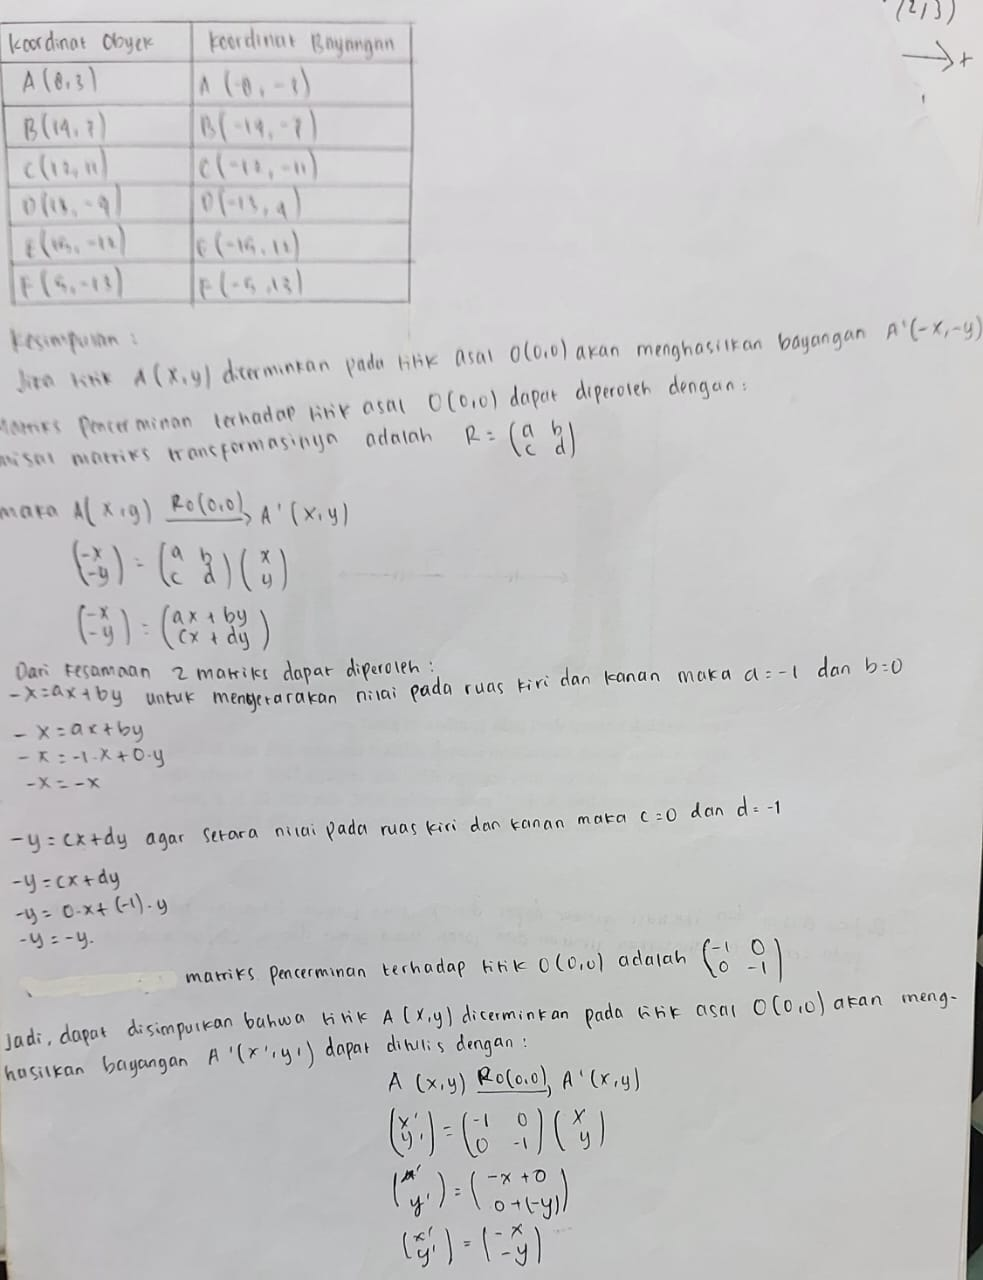 (2,3)
→+
Koordinat Obyek Koordinat Bayangan
A (8,3) A (-8, -3)
B(14, 7) B(-14, -7)
C(12, 11) C(-12, -11)
D(13, -9) D(-13, 9)
E(15, -12) E(-15, 12)
F(5, -13) F(-5, 13)
Kesimpulan :
Jika titik A (x,y) dicerminkan pada titik asal O(0,0) akan menghasilkan bayangan A'(-x,-y)
Matriks Pencerminan terhadap titik asal O(0,0) dapat diperoleh dengan :
misal matriks transformasinya adalah R = (a b
c d)
maka A(x,y) Ro(0,0) → A' (x,y)
(-x
-y) = (a b
c d) (x
y)
(-x
-y) = (ax + by
cx + dy)
Dari kesamaan 2 matriks dapat diperoleh :
-x=ax+by untuk menyetarakan nilai pada ruas kiri dan kanan maka a=-1 dan b=0
- x=ax+by
- x = -1.x+0.y
-x=-x
-y = cx+dy agar setara nilai pada ruas kiri dan kanan maka c=0 dan d=-1
-y=cx+dy
-y= 0.x+ (-1).y
-y=-y.
matriks pencerminan terhadap titik O(0,0) adalah (-1 0
0 -1)
Jadi, dapat disimpulkan bahwa titik A (x,y) dicerminkan pada titik asal O(0,0) akan meng-
hasilkan bayangan A'(x',y') dapat ditulis dengan :
A (x,y) Ro(0,0) → A'(x,y)
(x'
y') = (-1 0
0 -1) (x
y)
(x'
y') = (-x +0
0+(-y))
(x'
y') = (-x
-y)